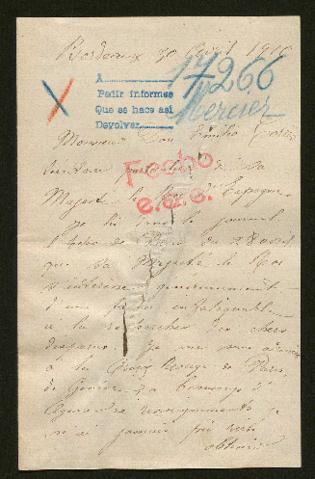 Bordeaux 30 Avril 1916
17266
A
Pedir informes
Que se hace así
Devolver
Mercier
Monsieur Don Emilio
Secrétaire particulier de Sa
Fecho
Majesté le Roi d'Espagne
e.e.e.
Je lis dans le journal
l'Echo de Paris du 28 avril
que Sa Majesté le Roi
s'intéresse
d'une façon infatigable
à la recherche des chers
disparus. Je me suis
à la Croix Rouge de Paris,
de Genève, à beaucoup d'
renseignements je
n'ai jamais pu rien
obtenir